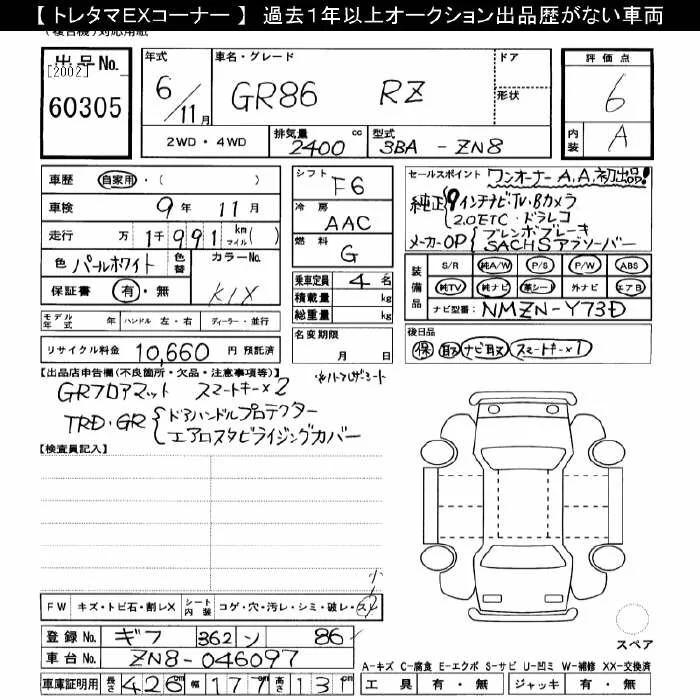 【 トレタマEXコーナー 】 過去1年以上オークション出品歴がない車両
出品No. [2002]
60305
年式 6/11月
車名・グレード GR86 RZ
ドア
形状
評価点 6
内装 A
2WD・4WD 排気量 2400 cc 型式 3BA - ZN8
車歴 自家用・( )
車検 9年 11月
走行 万 1千991 km マイル( )
色 パールホワイト 色替 カラーNo. K1X
保証書 有・無
シフト F6
冷房 AAC
燃料 G
乗車定員 4 名
積載量 kg
総重量 kg
名変期限 月 日
セールスポイント ワンオーナー A.A.初出品!
純正9インチナビTV・Bカメラ
2.0ETC・ドラレコ
メーカーOP ブレンボブレーキ
SACHSアブソーバー
装備品 S/R 純A/W P/S P/W ABS
純TV 純ナビ 革シート 外ナビ エアB
ナビ型番: NMZN-Y73D
モデル年式 年 ハンドル 左・右 ディーラー・並行
リサイクル料金 10,660 円 預託済
後日品
保 取 ナビ取 スマートキー×1
【出品店申告欄(不良箇所・欠品・注意事項等)】 ※ハーフレザーシート
GRフロアマット スマートキー×2
TRD・GR ドアハンドルプロテクター
エアロスタビライジングカバー
【検査員記入】
小
FW キズ・トビ石・割レX シート内装 コゲ・穴・汚レ・シミ・破レ・スレ
登録No. ギフ 362 ン 86
車台No. ZN8-046097
車庫証明用 長さ 426cm 幅 177 高さ 131cm
スペア
A-キズ C-腐食 E-エクボ S-サビ U-凹ミ W-補修 XX-交換済
工具 有・無 ジャッキ 有・無